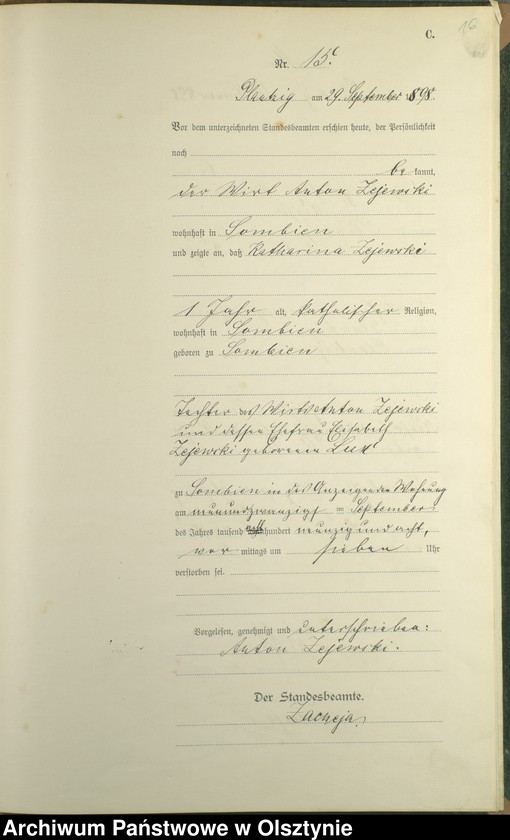 16
C.
Nr. 15.
am 29. September 1898.
Vor dem unterzeichneten Standesbeamten erschien heute, der Persönlichkeit
nach
be kannt,
der Wirt Anton Zejewski
wohnhaft in Sombien
und zeigte an, daß Katharina Zejewski
1 Jahr alt, katholischer Religion,
wohnhaft in Sombien
geboren zu Sombien
Tochter des Wirts Anton Zejewski
und dessen Ehefrau Elisabeth
Zejewski geborenen Lux
zu Sombien in des Anzeigenden Wohnung
am neunundzwanzigsten September
des Jahres tausend acht hundert neunzig und acht,
vor mittags um sieben Uhr
verstorben sei.
Vorgelesen, genehmigt und unterschrieben:
Anton Zejewski.
Der Standesbeamte.
Zacheja.
Archiwum Państwowe w Olsztynie